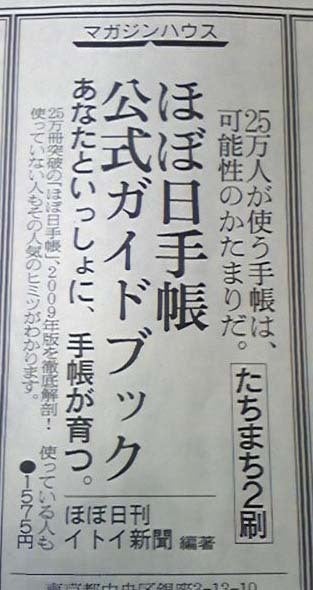 マガジンハウス
25万人が使う手帳は、
可能性のかたまりだ。
たちまち2刷
ほぼ日手帳
公式ガイドブック
あなたといっしょに、手帳が育つ。
ほぼ日刊
イトイ新聞 編著
25万冊突破の「ほぼ日手帳」、2009年版を徹底解剖！ 使っている人も
使っていない人もその人気のヒミツがわかります。
●1575円
東京都中央区銀座3-13-10